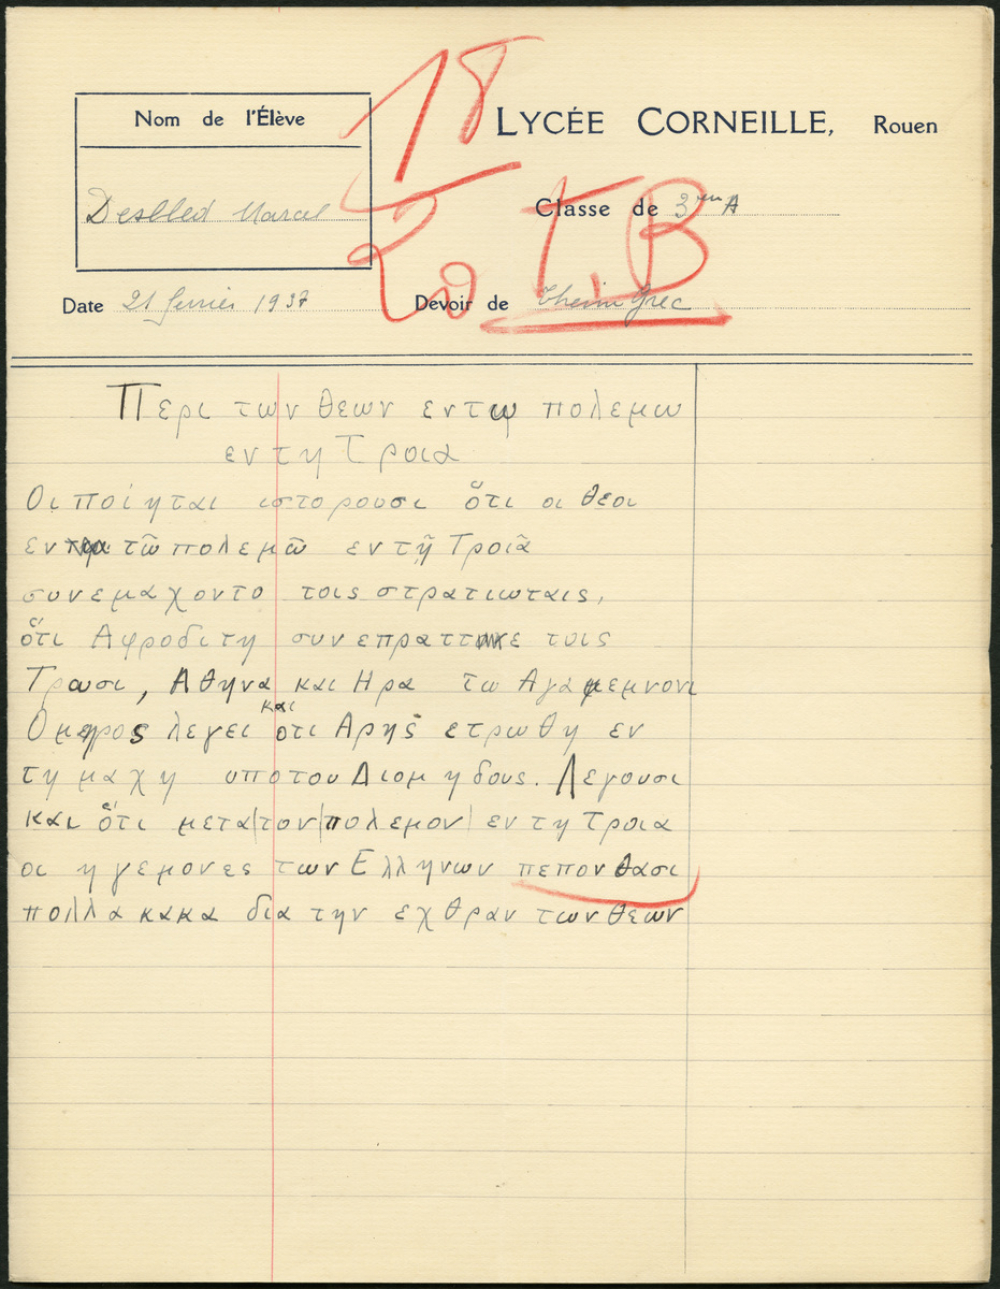 18
20
T.B
Nom de l'Élève
LYCÉE CORNEILLE, Rouen
Desbled Marcel
Classe de 3em A
Date 21 fevrier 1937
Devoir de Theme grec
Περι των θεων εν τῳ πολεμω
εν τη Τροια
Οι ποίηται ιστορουσι ὅτι οι θεοι
εν τῶ πολεμῶ εν τῇ Τροιᾶ
συνεμαχοντο τοις στρατιωταις,
ὅτι Αφροδιτη συνεπραττε τοις
Τρωσι, Αθηνα και Ηρα τω Αγαμεμνονι
Ομηρος λεγει και οτι Αρης ετρωθη εν
τη μαχη υπο του Διομηδους. Λεγουσι
και ὅτι μετα τον πολεμον εν τη Τροια
οι ηγεμονες των Ελληνων πεπονθασι
πολλα κακα δια την εχθραν των θεων